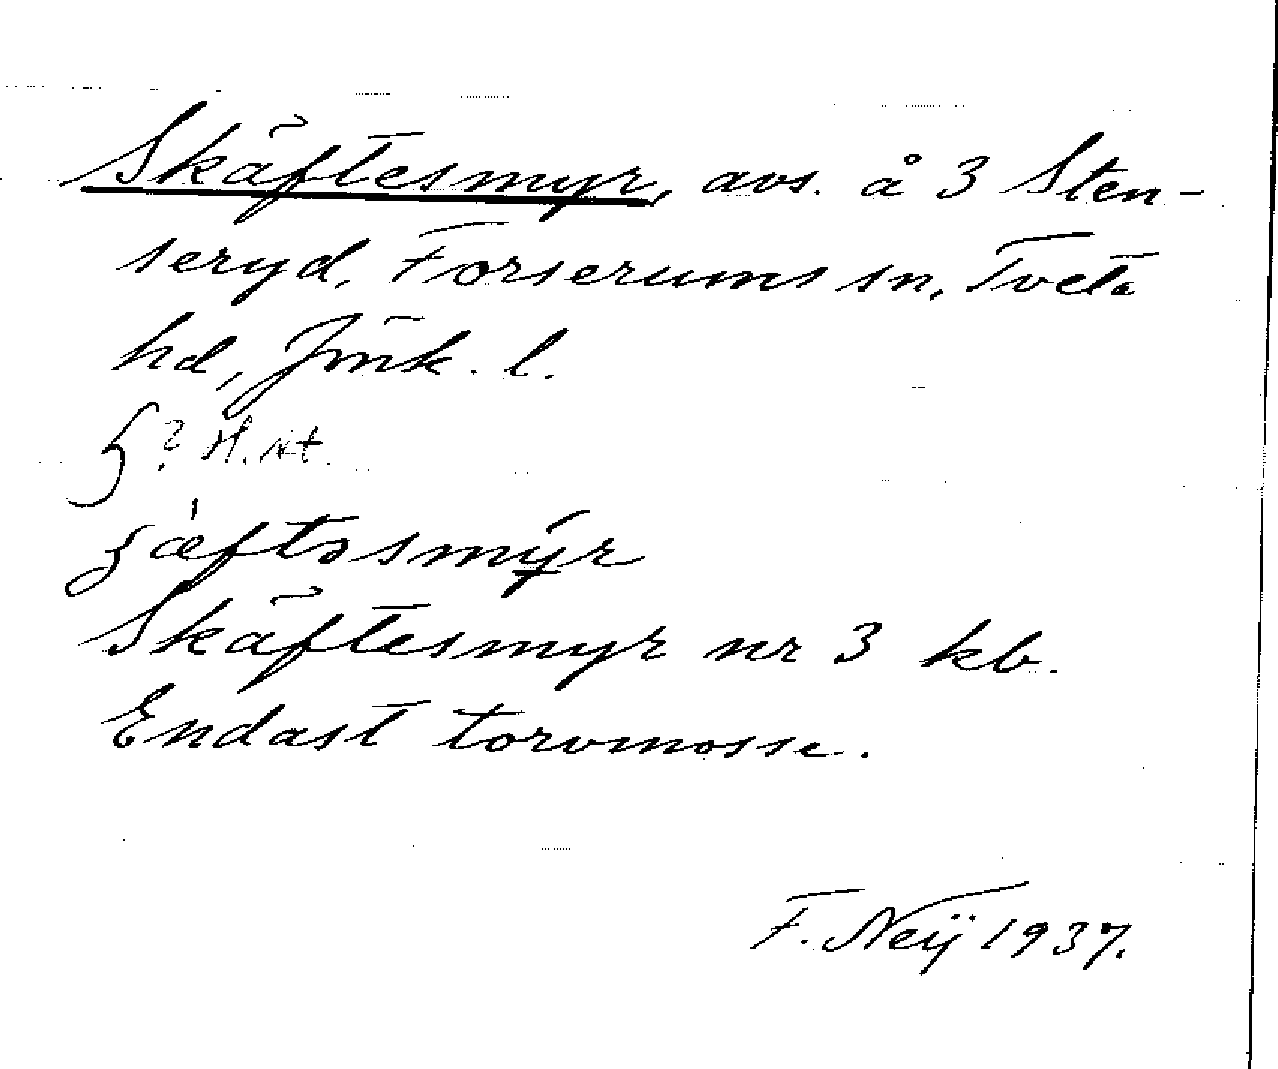 Skäftesmyr, avs. å 3 Sten-
seryd, Forserums sn, Tveta
hd, Jönk. l.
? H. st.
Skäftesmyr nr 3 kb.
Endast torvmosse.
F. Neij 1937.